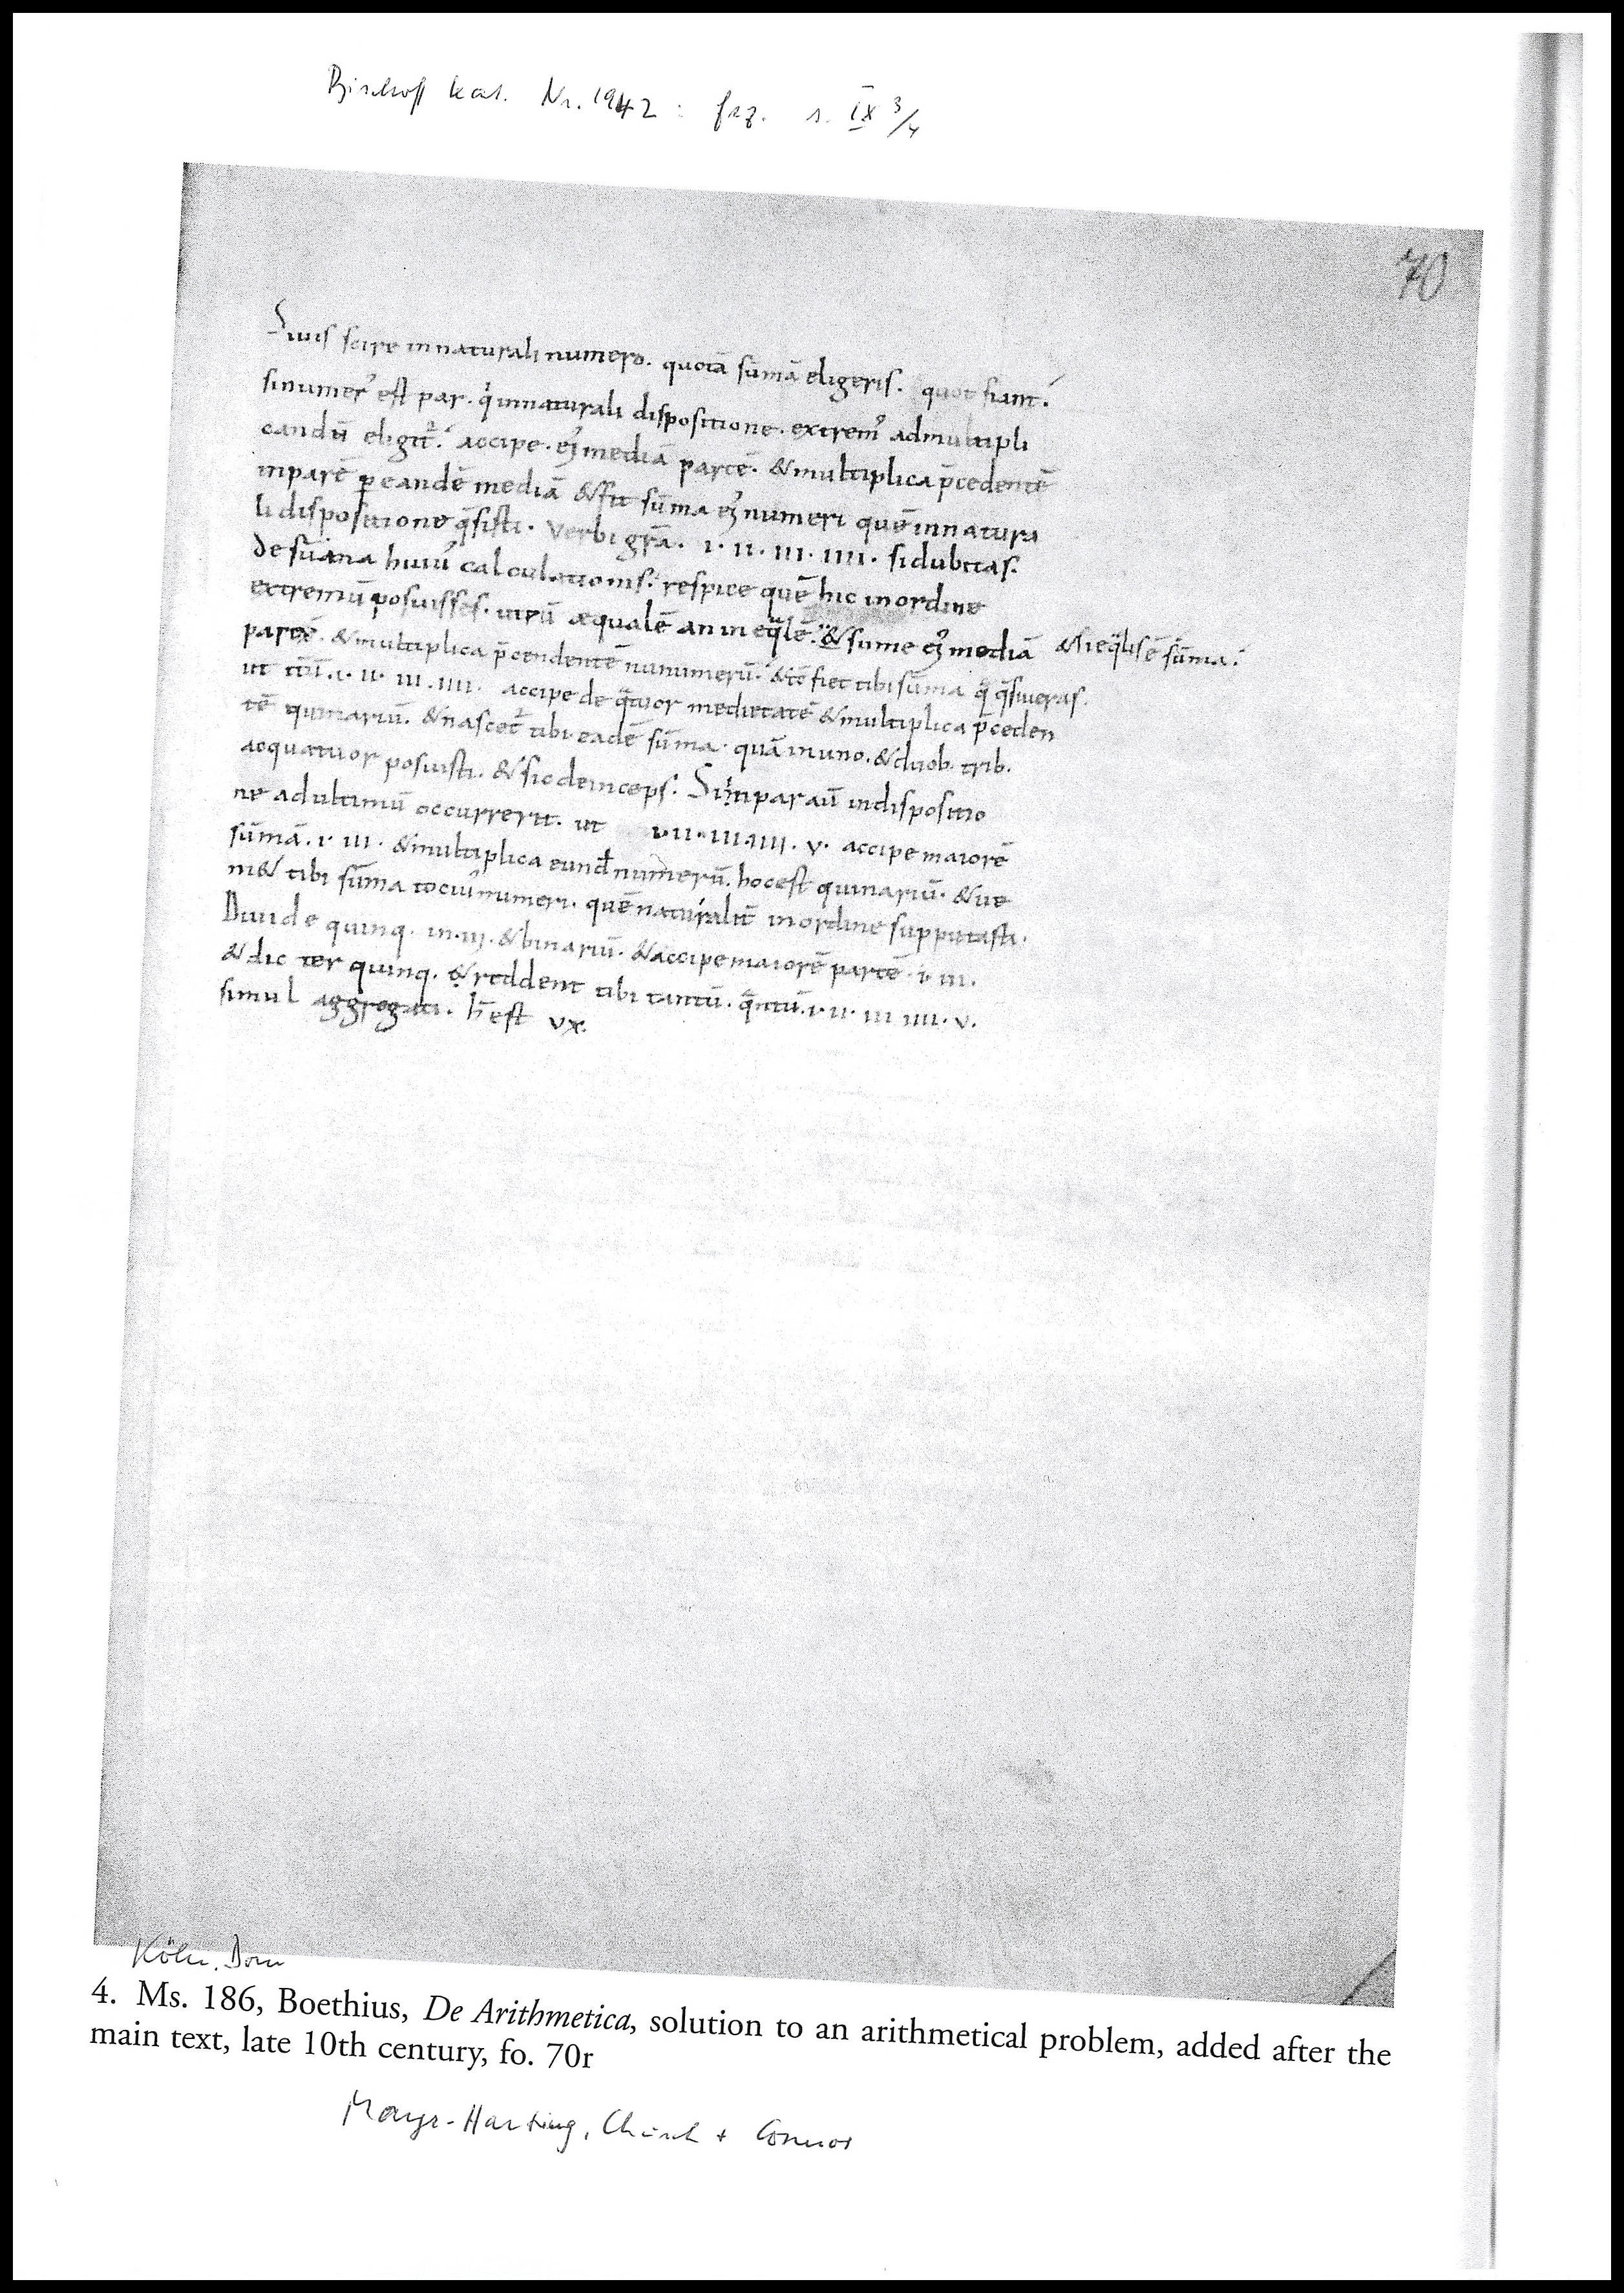 Bischoff Kat. Nr. 1942 : frz. s. IX 3/4
70
Suuis scire innaturali numero. quotā sūmā eligeris. quot fiant.
si numer᷒ est par. q innaturali dispositione. extrem᷒ admultipli
candū eligit᷒. accipe. ei᷒ mediā partē. & multiplica p̄cedentē
inparē ꝑ eandē mediā & fit sūma ei᷒ numeri quē innatura
li dispositione q̄sisti. verbi grā. ı. ıı. ııı. ıııı. si dubitas.
de sūma huiu᷒ calculationis. respice quē hic inordine
extremū posuisses. utrū æqualē an ineq̄lē. & sume ei᷒ mediā & si eq̄lis ē sūma.
partē. & multiplica p̄cendentē nunumerū. & tē fiet tibi sūma q̄ q̄siueras.
ut ı. ıı. ııı. ıııı. accipe de q̄tuor medietatē & multiplica p̄ceden
tē quinariū. & nascet᷒ tibi eadē sūma. quā in uno. & duob. trib.
acquatuor posuisti. & sic deinceps. Si inpar aū indispositio
ne ad ultimū occurrerit. ut ı. ıı. ııı. ıııı. v. accipe maiorē
sūmā. ı. ııı. & multiplica eund numerū. hoc est quinariū. & ue
n& tibi sūma tociu᷒ numeri. quē naturalit̄ inordine supputasti.
Diuide quinq. in. ııȷ. & binariū. & accipe maiorē partē. ı. ııı.
& dic ter quinq. & reddent tibi tantū. q̄ntū. ı. ıı. ııı ıııı. v.
simul aggregati. h̄ est vx.
Köln, Dom
4. Ms. 186, Boethius, De Arithmetica, solution to an arithmetical problem, added after the
main text, late 10th century, fo. 70r
Mayr-Harting, Church + Cosmos